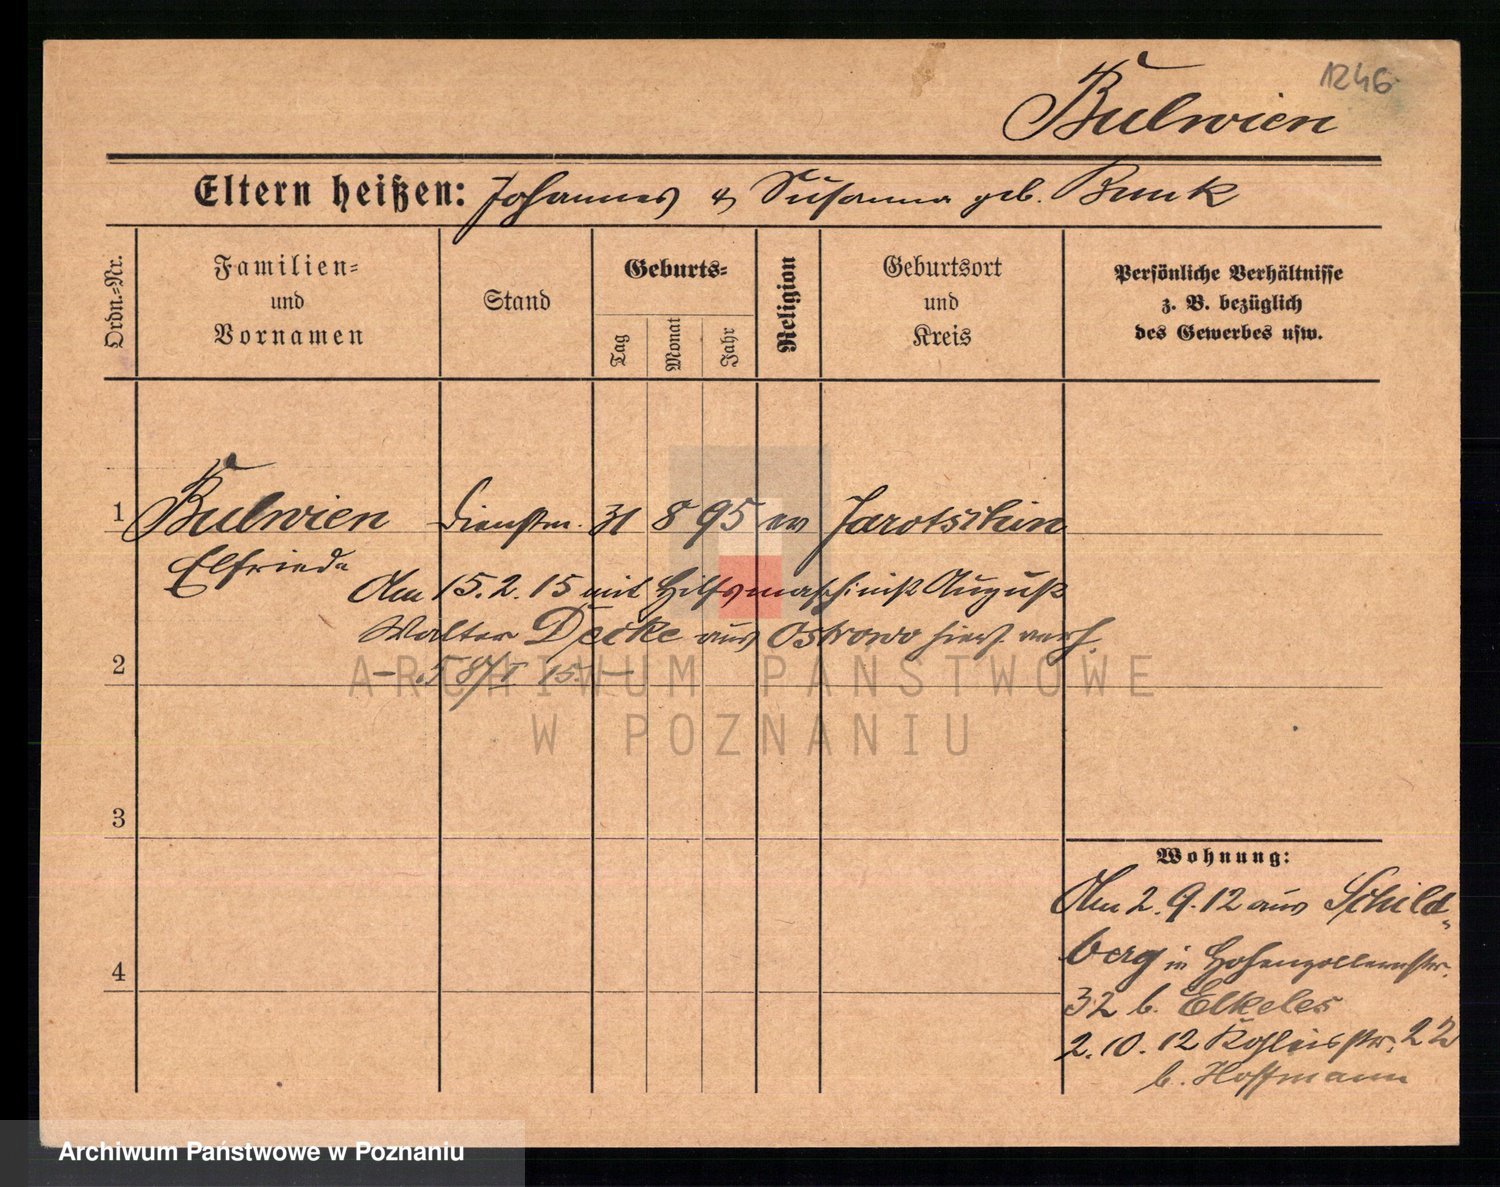 1246
Bulwien
Eltern heißen: Johannes & Susanna geb. Bunk
Ordn.-Nr.
Familien-
und
Vornamen
Stand
Geburts-
Tag
Monat
Jahr
Religion
Geburtsort
und
Kreis
Persönliche Verhältnisse
z. B. bezüglich
des Gewerbes usw.
1 Bulwien Dienstm. 31 8 95 ev Jarotschin
Elfriede
Am 15.2.15 mit Hilfsmaschinist August
Walter Decke aus Ostrowo hier verh.
2
ARCHIWUM PAŃSTWOWE
W POZNANIU
3
Wohnung:
Am 2.9.12 aus Schild-
4
berg in Hohenzollernstr.
32 b. Elkeles
2.10.12 22
b. Hoffmann
Archiwum Państwowe w Poznaniu